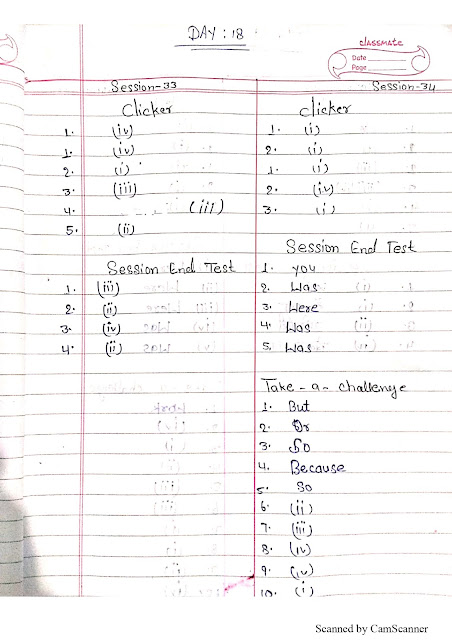 DAY : 18
classmate
Date
Page
Session-33
Clicker
1. (iv)
1. (iv)
2. (i)
3. (iii)
4. (iii)
5. (ii)
Session End Test
1. (iii)
2. (ii)
3. (iv)
4. (ii)
Session-34
clicker
1. (i)
2. (i)
1. (i)
2. (iv)
3. (i)
Session End Test
1. you
2. Was
3. Were
4. Was
5. Was
Take-a-challenge
1. But
2. Or
3. So
4. Because
5. So
6. (ii)
7. (iii)
8. (iv)
9. (iv)
10. (i)
Scanned by CamScanner